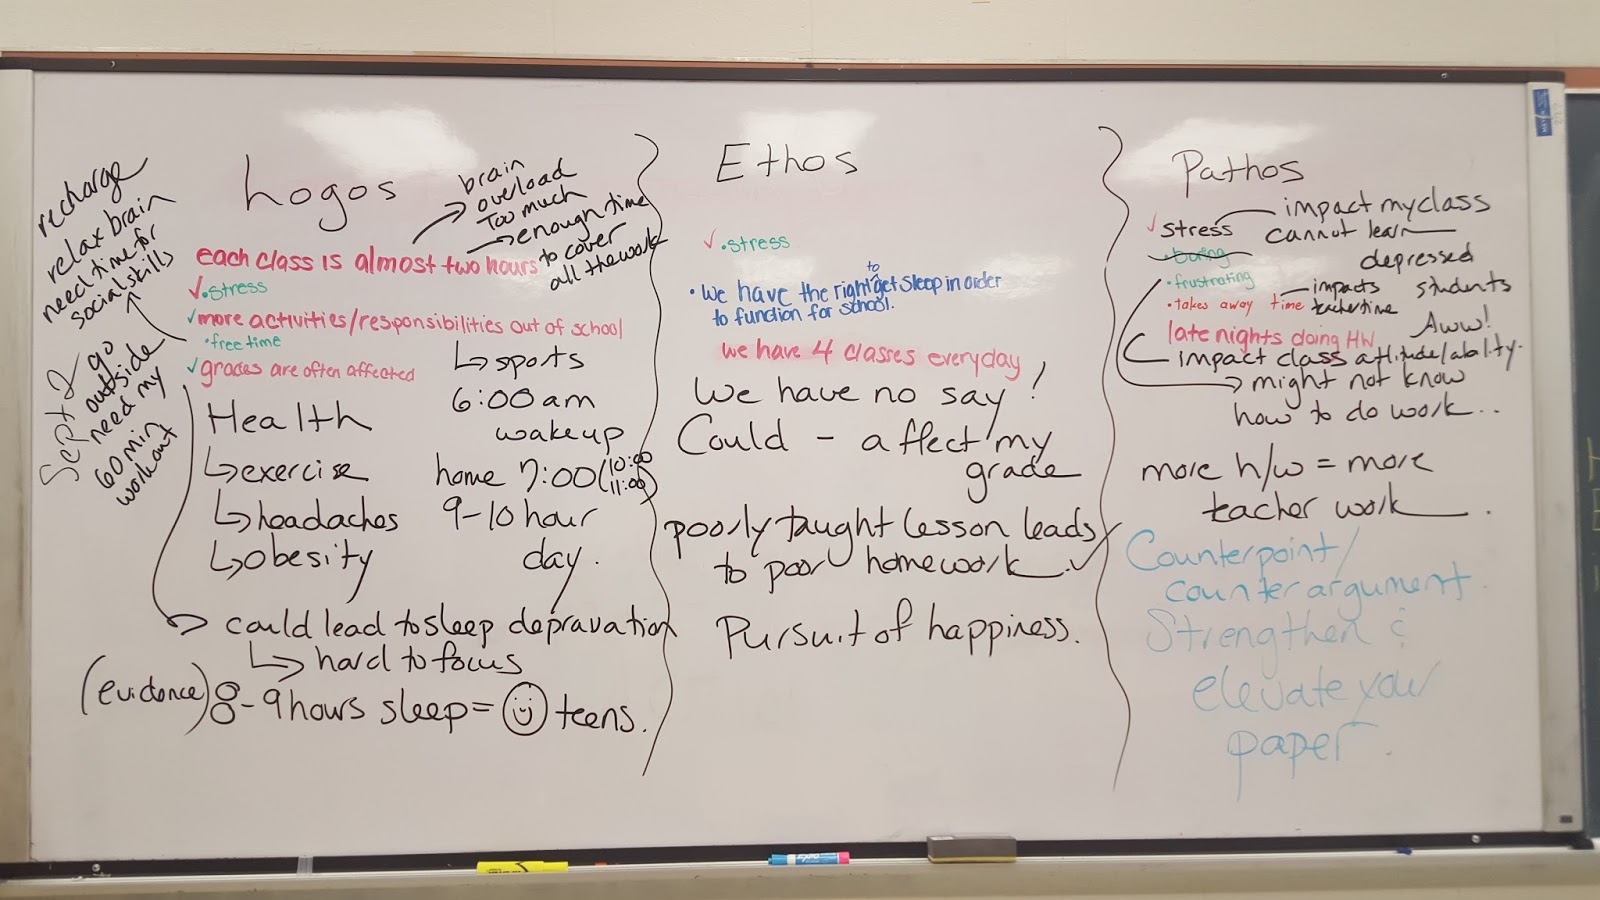 recharge
relax brain
need time for
social skills
Sept 2 go
outside
need my
60 min
workout
Logos
brain
overload
Too much
enough time
to cover
all the work
each class is almost two hours
• stress
more activities/responsibilities out of school
• free time
grades are often affected
Health
exercise
headaches
obesity
sports
6:00 am
wake up
home 7:00 (10:00
11:00)
9-10 hour
day.
could lead to sleep depravation
hard to focus
(evidence) 8-9 hours sleep = teens.
Ethos
• stress
• we have the right to get sleep in order
to function for school.
we have 4 classes everyday
We have no say!
Could - affect my
grade
poorly taught lesson leads
to poor homework.
Pursuit of happiness.
Pathos
stress impact my class
cannot learn
• boring depressed
• frustrating impacts students
• takes away time teacher time
late nights doing HW Aww!
impact class attitude/ability.
might not know
how to do work..
more h/w = more
teacher work.
Counterpoint/
counter argument.
Strengthen &
elevate your
paper.